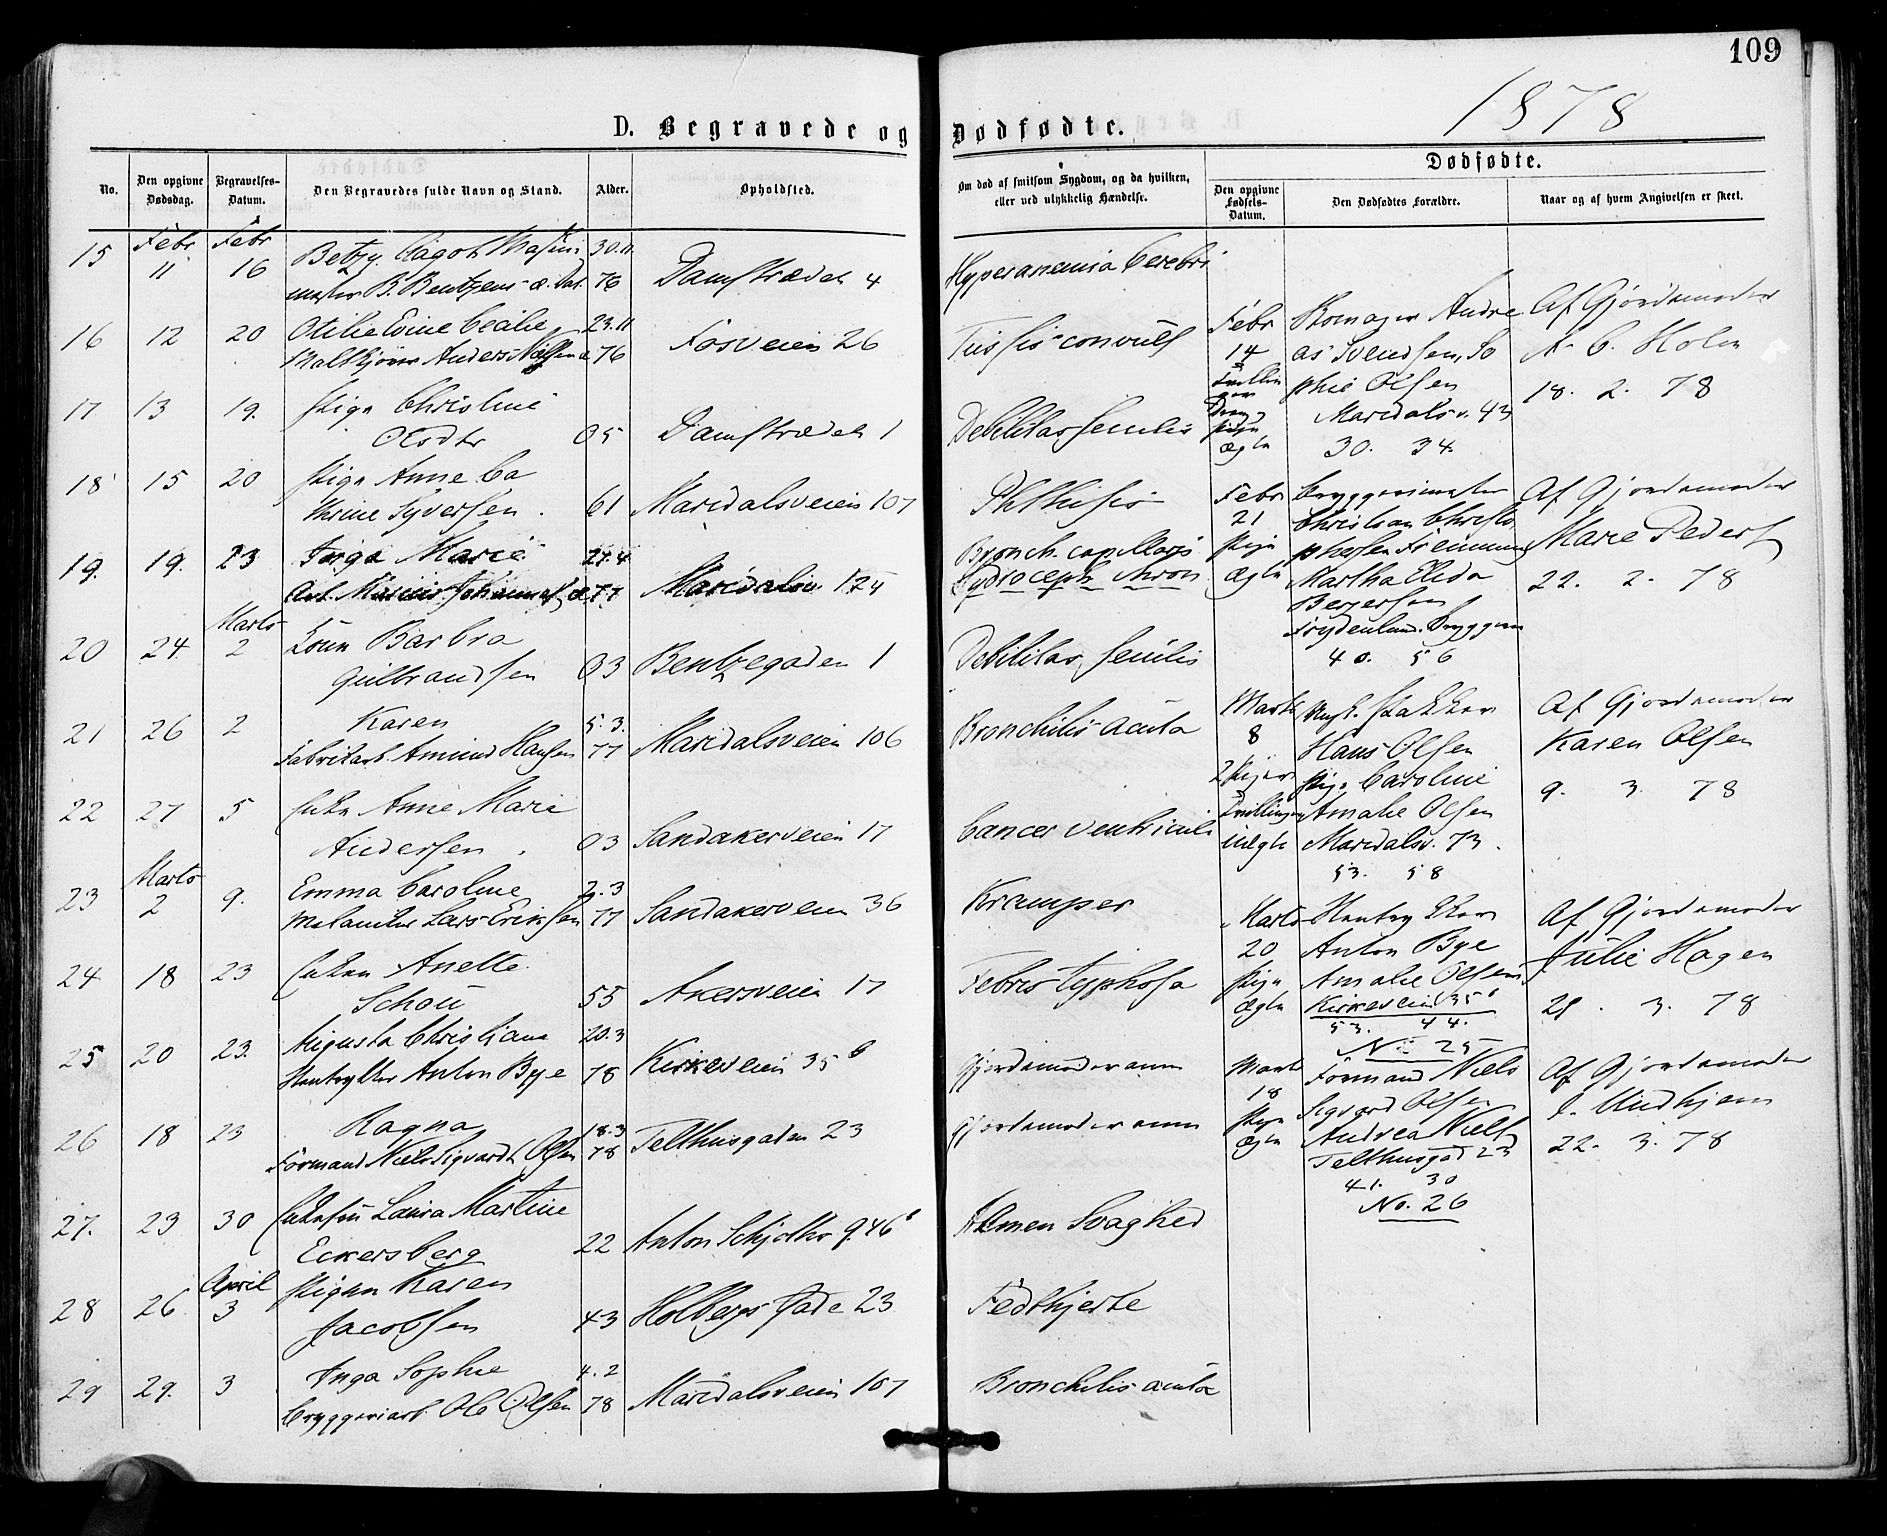 109
1878
D. Begravede og Dødfødte.
No.
Den opgivne Dødsdag.
Begravelses-Datum.
Den Begravedes fulde Navn og Stand.
Alder.
Opholdsted.
Om død af smitsom Sygdom, og da hvilken, eller ved ulykkelig Hændelse.
Dødfødte.
Den opgivne Fødsels-Datum.
Den Dødfødtes Forældre.
Naar og af hvem Angivelsen er skeet.
15 Febr 11 Febr 16 Betzy Aagot 30.11
B. Bentzens 76 Damstrædet 4 Hyperanemia Cerebri
16 12 20 Otilie Evine Cecilie 23.11
Anders Nilsen 76 Fosveien 26 Tussis convuls
17 13 19. Pige Christine
Olsdtr 05 Damstrædet 1 Debilitas senilis
18 15 20 Pige Anne Ca
thrine Syversen. 61 Maridalsveien 107 Phthisis
19. 19. 23 Inga Marie 27.4 Bronch. capillaris
Arb. Johannes 77 Maridalsv 124 Hydroceph. chron
20 24. Marts 2 Barbra
Gulbrandsen 03 Bentzegaden 1 Debilitas senilis
21 26 2 Karen 5.3.
Fabrikarb. Amund Hansen 77 Maridalsveien 106 Bronchitis acuta
22 27 5 Enke Anne Marie
Andersen. 03 Sandakerveien 17 Cancer ventriculi
23 Marts 2 9. Emma Caroline 2.3
Lars Eriksen 77 Sandakerveien 36 Kramper
24 18 23 Enken Anette
Schou 55 Akersveien 17 Febris typhosa
25 20 23. Augusta Christiane 20.3
Anton Bye 78 Kirkeveien 35 b Gjordemoderanm
26 18 23 Ragna 18.3
Formand Niels Sigvardt Olsen 78 Telthusgaden 23 Gjordemoderanm
27. 23 30 Laura Martine
Eckersberg 22 Anton Schjøths g. 46 b Almen Svaghed
28 26 April 3 Pigen Karen
Jacobsen 43 Holbergs Gade 23 Fedthjerte
29 29. 3 Inga Sophie 4.2
Bryggeriarb. Ole Olsen 78 Maridalsveien 107 Bronchitis acuta
Febr
14
Tvillin
ger
Dreng
Pige
ægte
Andre
as Svendsen, So
phie Olsen
Maridalsv. 43
30. 34.
Af Gjordemoder
N. C. Holm
18. 2. 78
Febr
21
Pige
Ægte
Bryggerimester
Christian Christo
phersen
Martha Elida
Bergersen
Frydenlund. Bryggeri
40. 56
Af Gjordemoder
Marie Peders
22. 2. 78
Marts
8
2 Piger
Tvillinger
uægte
Ungk. Snekker
Hans Olsen
Pige Caroline
Amalie Olsen
Maridalsv. 73.
53. 58
Af Gjordemoder
Karen Olsen
9. 3. 78
Marts
20
Pige
Ægte
Anton Bye
Amalie Olsen
Kirkeveien 35 b
53. 44.
No 25
Af Gjordemoder
Julie Hagen
21. 3. 78
Marts
18
Pige
Ægte
Formand Niels
Sigvard Olsen
Andrea Niels
Telthusgad 23
41. 30
No. 26
Af Gjordemoder
22. 3. 78